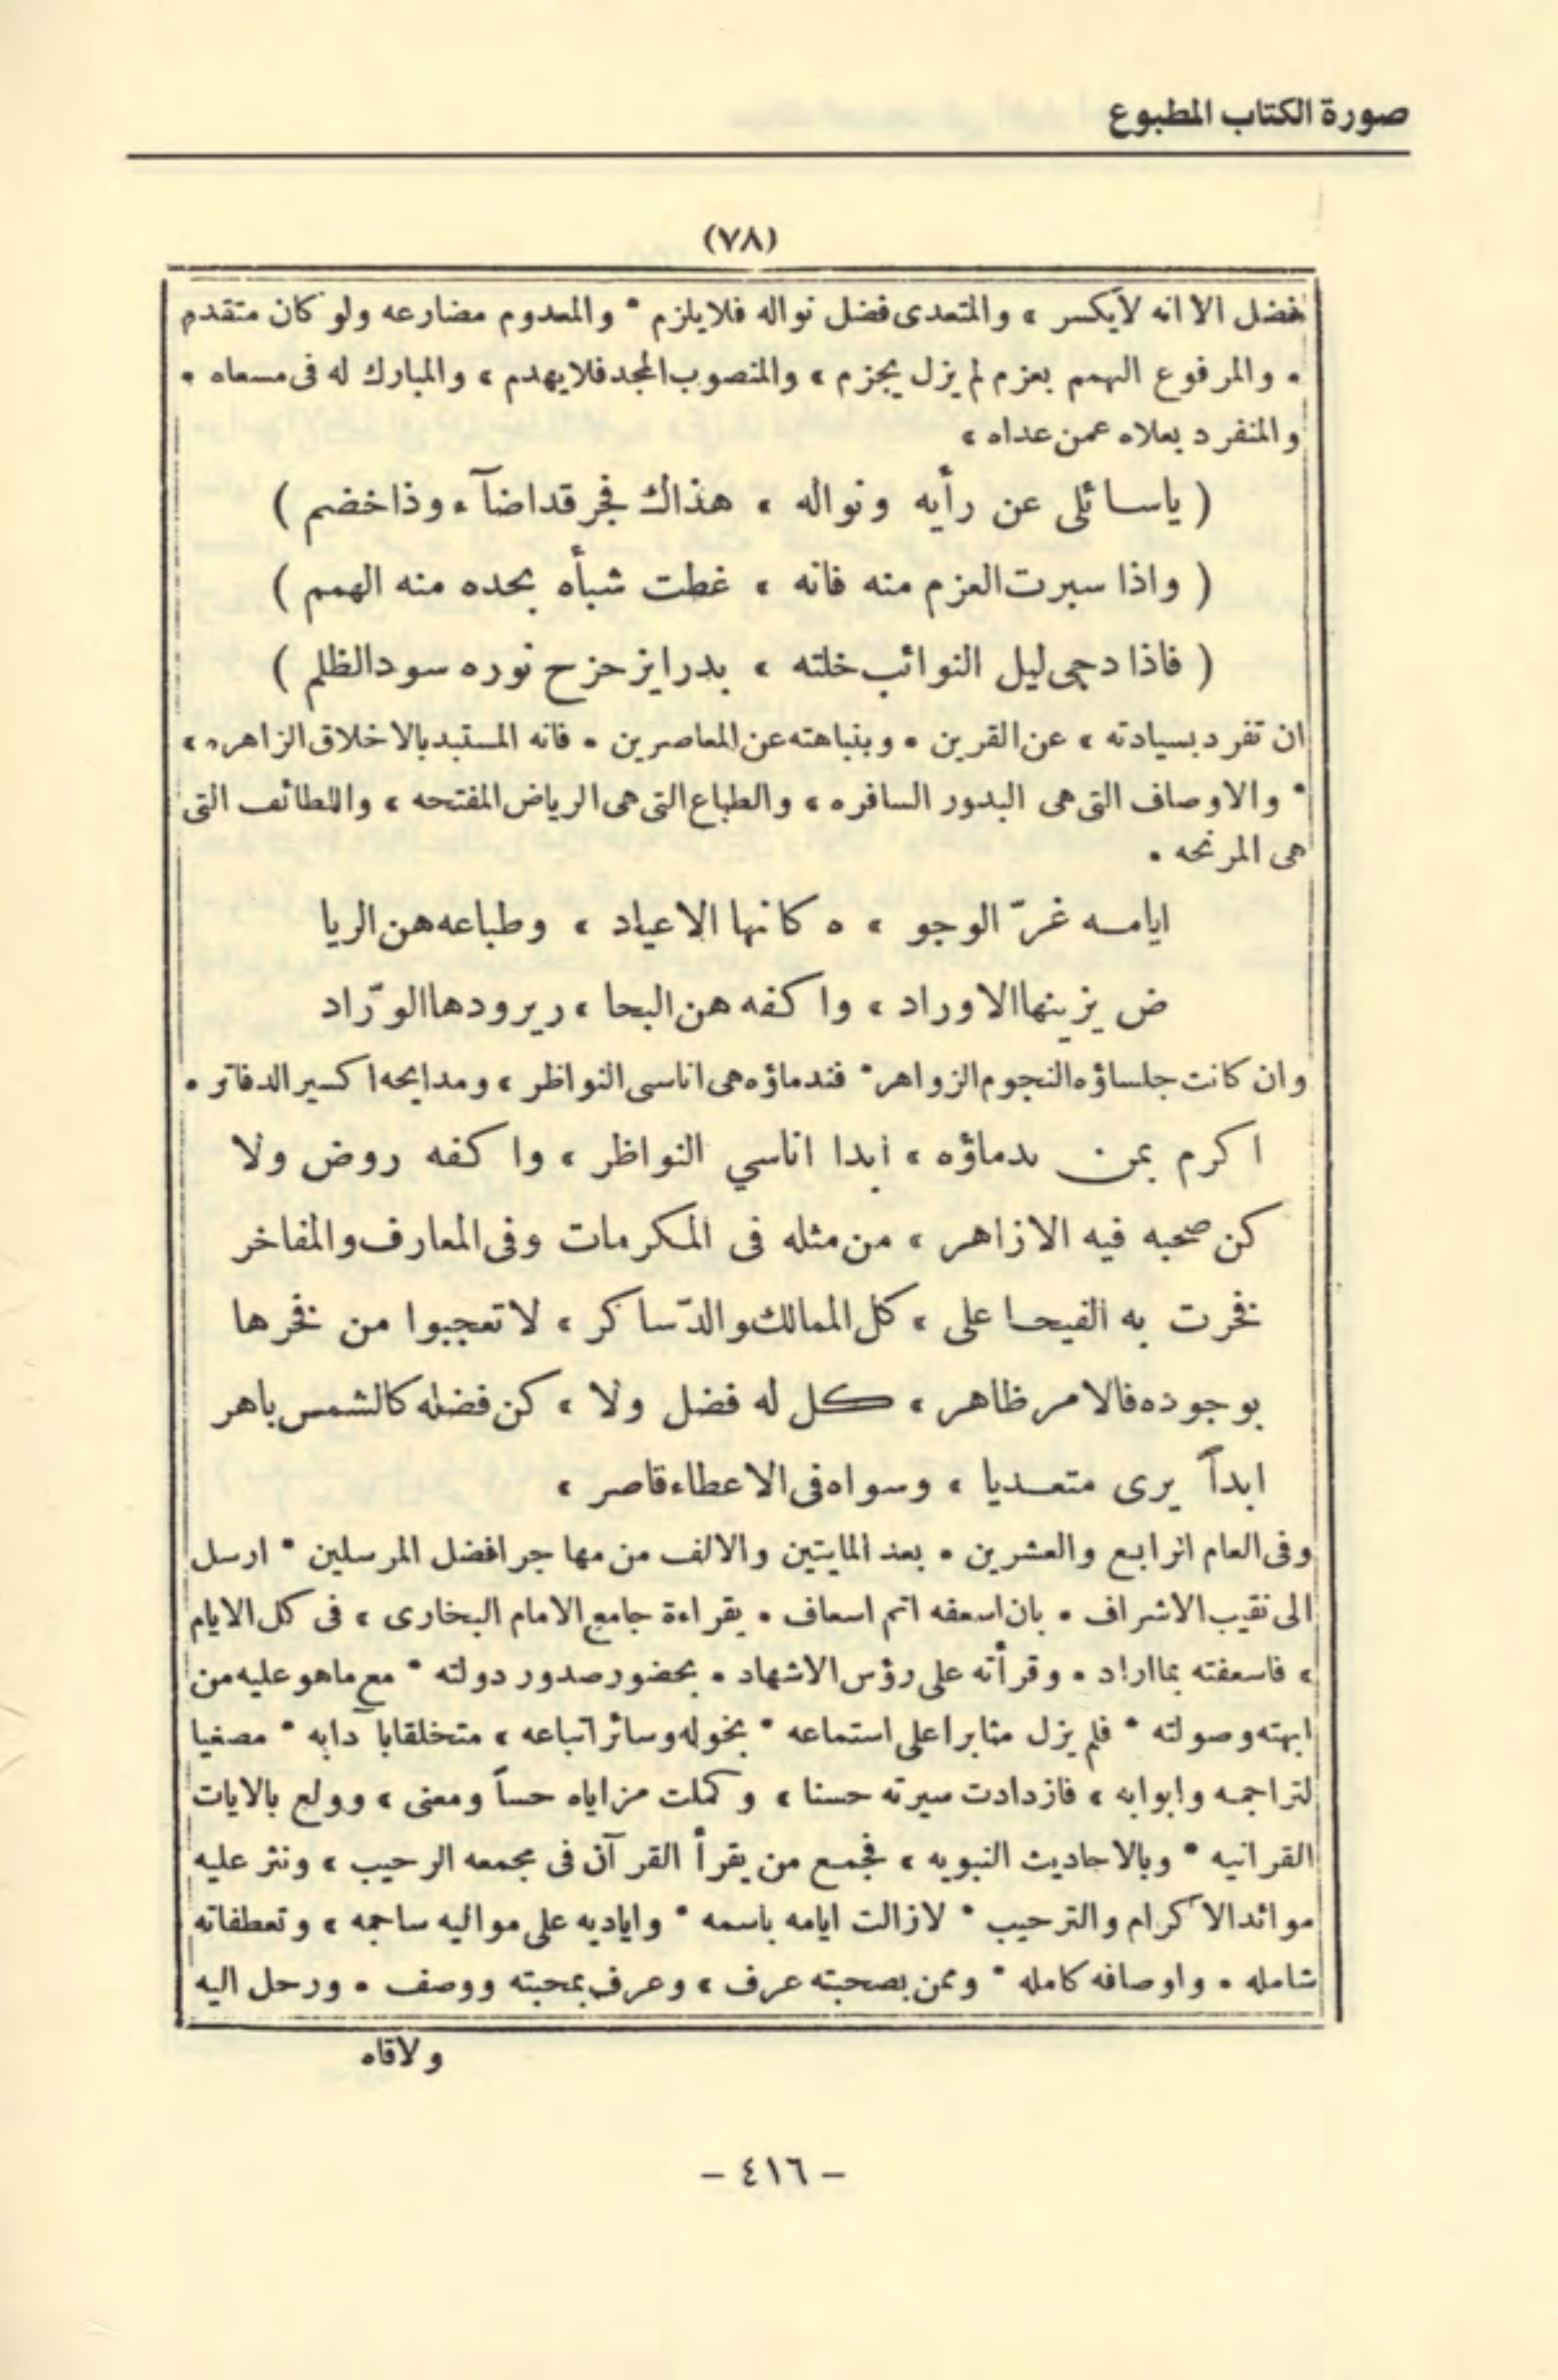 صورة الكتاب المطبوع
(٧٨)
فضل الا انه لا يكسر ، والمتعدى فضل نواله فلا يلزم * والمعدوم مضارعه ولو كان متقدم
• والمرفوع الهمم بعزم لم يزل يجزم ، والمنصوب المجد فلا يهدم ، والمبارك له فى مسعاه •
والمنفرد بعلاه عمن عداه ،
( ياسائلى عن رأيه ونواله ، هذاك فجر قد اضآء وذا خضم )
( واذا سبرت العزم منه فانه ، غطت شبأه بحده منه الهمم )
( فاذا دجى ليل النوائب خلته ، بدرا يزحزح نوره سود الظلم )
ان تفرد بسيادته ، عن القرين • وبنباهته عن المعاصرين • فانه المستبد بالاخلاق الزاهره ،
* والاوصاف التى هى البدور السافره ، والطباع التى هى الرياض المفتحه ، واللطائف التى
هى المرنحه •
ايامه غرّ الوجو ، ه كانها الاعياد ، وطباعه هن الريا
ض يزينها الاوراد ، واكفه هن البحا ، ر يرودها الورّاد
وان كانت جلساؤه النجوم الزواهر * فندماؤه هى اناسى النواظر ، ومدايحه اكسير الدفاتر •
اكرم بمن ندماؤه ، ابدا اناسي النواظر ، واكفه روض ولا
كن صحبه فيه الازاهر ، من مثله فى المكرمات وفى المعارف والمفاخر
فخرت به الفيحا على ، كل الممالك والدّساكر ، لا تعجبوا من فخرها
بوجوده فالامر ظاهر ، كل له فضل ولا ، كن فضله كالشمس باهر
ابداً يرى متعديا ، وسواه فى الاعطاء قاصر ،
وفى العام الرابع والعشرين • بعد المايتين والالف من مهاجر افضل المرسلين * ارسل
الى نقيب الاشراف • بان اسعفه اتم اسعاف • بقراءة جامع الامام البخارى ، فى كل الايام
، فاسعفته بما اراد • وقرأته على رؤس الاشهاد • بحضور صدور دولته * مع ماهو عليه من
ابهته وصولته * فلم يزل مثابرا على استماعه * بخوله وسائر اتباعه ، متخلقا بآ دابه * مصغيا
لتراجمه وابوابه ، فازدادت سيرته حسنا ، وكملت مزاياه حساً ومعنى ، وولع بالايات
القرانيه * وبالاحاديث النبويه ، فجمع من يقرأ القرآن فى مجمعه الرحيب ، ونثر عليه
موائد الاكرام والترحيب * لازالت ايامه باسمه * واياديه على مواليه ساجمه ، وتعطفاته
شامله • واوصافه كامله * وممن بصحبته عرف ، وعرف بمحبته ووصف • ورحل اليه
ولاقاه
– ٤١٦ –